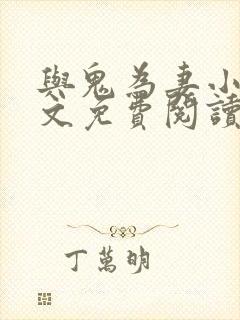 與鬼為妻小
文免費閱讀
丁萬明